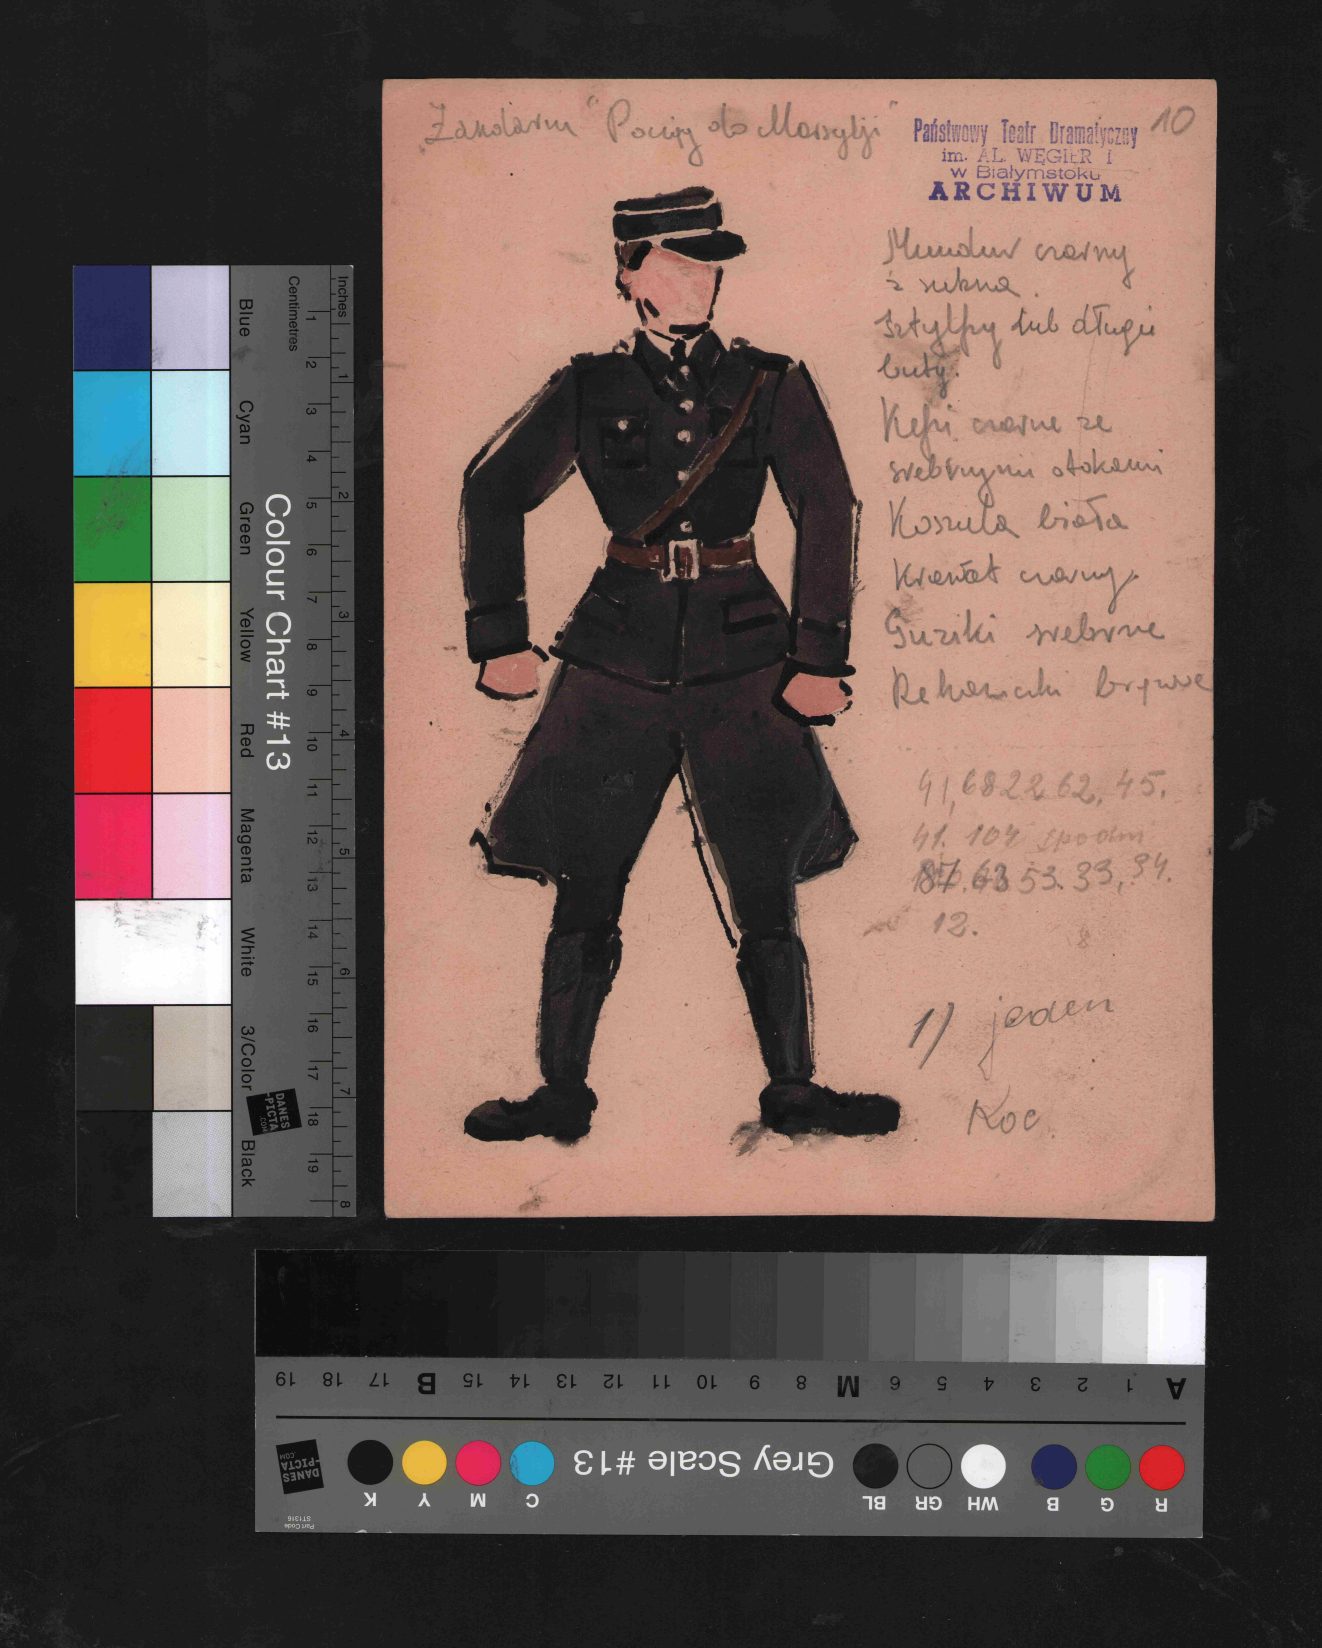 Żandarm "Pociąg do Marsylji" 10
Państwowy Teatr Dramatyczny
im. AL. WĘGIERKI
w Białymstoku
ARCHIWUM
Mundur czarny
z sukna.
Sztylpy lub długie
buty.
Kepi czarne ze
srebrnymi otokami
Koszula biała
Krawat czarny.
Guziki srebrne
Rękawiczki brązowe
41, 68 22 62, 45.
41. 104 spodni
63 53. 33, 34.
12.
8
1) jeden
Koc.
Inches
Centimetres
1 2 3 4 5 6 7 8 9 10 11 12 13 14 15 16 17 18 19
1 2 3 4 5 6 7 8
Colour Chart #13
Blue
Cyan
Green
Yellow
Red
Magenta
White
3/Color
Black
DANES
-PICTA
.COM
A 1 2 3 4 5 6 M 8 9 10 11 12 13 14 15 B 17 18 19
R G B WH GR BL
Grey Scale #13
C M Y K
DANES
-PICTA
.COM
Part Code
ST1316